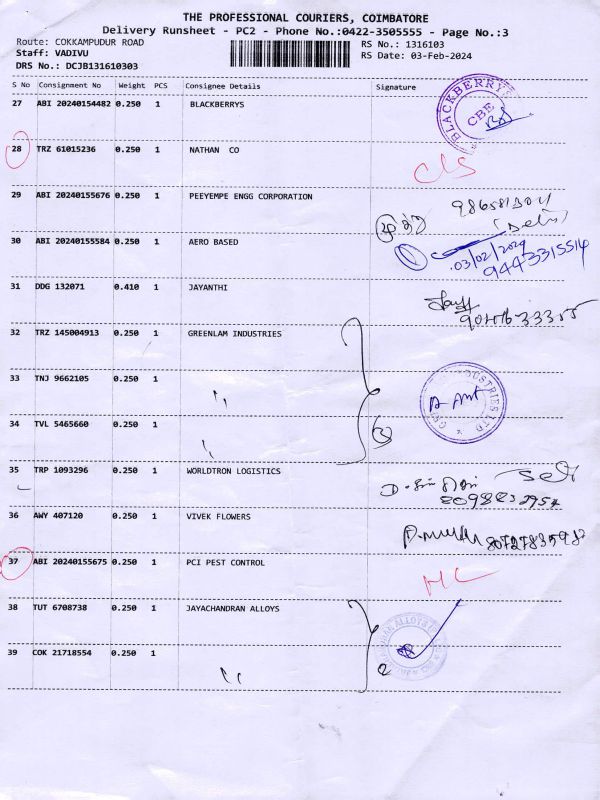 THE PROFESSIONAL COURIERS, COIMBATORE
Delivery Runsheet - PC2 - Phone No.:0422-3505555 - Page No.:3
Route: COKKAMPUDUR ROAD
RS No.: 1316103
Staff: VADIVU
RS Date: 03-Feb-2024
DRS No.: DCJB131610303
S No Consignment No Weight PCS Consignee Details Signature
27 ABI 20240154482 0.250 1 BLACKBERRYS
BLACKBERRYS
CBE
28 TRZ 61015236 0.250 1 NATHAN CO
C/S
29 ABI 20240155676 0.250 1 PEEYEMPE ENGG CORPORATION
30 ABI 20240155584 0.250 1 AERO BASED
03/02/2024
9443315514
31 DDG 132071 0.410 1 JAYANTHI
32 TRZ 145004913 0.250 1 GREENLAM INDUSTRIES
33 TNJ 9662105 0.250 1 ,,
34 TVL 5465660 0.250 1 ,,
3
35 TRP 1093296 0.250 1 WORLDTRON LOGISTICS
36 AWY 407120 0.250 1 VIVEK FLOWERS
37 ABI 20240155675 0.250 1 PCI PEST CONTROL
38 TUT 6708738 0.250 1 JAYACHANDRAN ALLOYS
2
39 COK 21718554 0.250 1 ,,